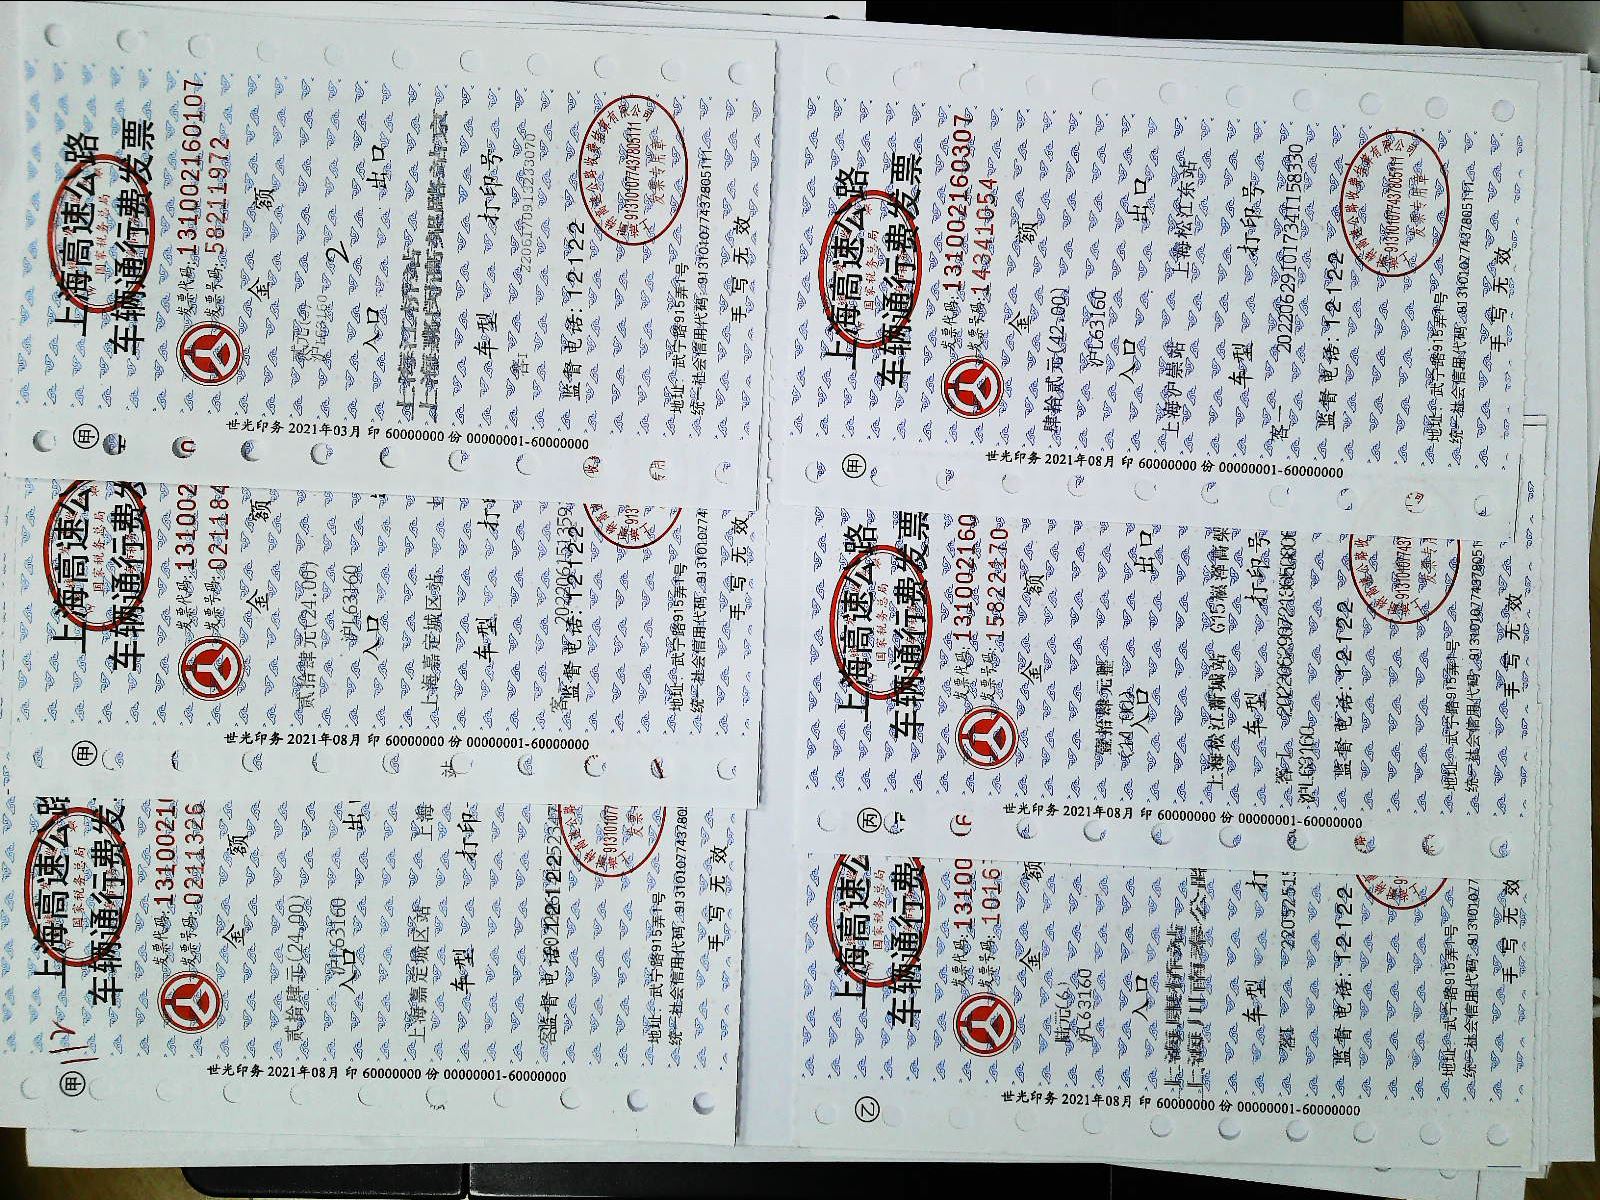 上海高速公路
车辆通行费发票
国家税务总局
发票代码:131002160107
发票号码:58211972
金 额
贰元
沪L63160
2
入口 出口
车型 打印号
客1 2206170913233070
监督电话:12122
913101077437805111
发票专用章
地址:武宁路915弄1号
统一社会信用代码:913101077437805111
手 写 无 效
甲
世光印务 2021年03月 印 60000000 份 00000001-60000000
上海高速公路
车辆通行费发
国家税务总局
发票代码:131002
发票号码:021184
金 额
贰拾肆元(24.00)
沪L63160
入口
上海嘉定城区站
车型 打
客
监督电话:12122
地址:武宁路915弄1号
统一社会信用代码:9131010774
手 写 无 效
甲
世光印务 2021年08月 印 60000000 份 00000001-60000000
上海高速公路
车辆通行费发
国家税务总局
发票代码:1310021
发票号码:0211326
金 额
贰拾肆元(24.00)
沪L63160
入口 出
上海嘉定城区站 上海
车型 打印
监督电话
地址:武宁路915弄1号
统一社会信用代码:91310107743780
手 写 无 效
甲
世光印务 2021年08月 印 60000000 份 00000001-60000000
上海高速公路
车辆通行费发票
国家税务总局
发票代码:131002160307
发票号码:14341054
金 额
肆拾贰元(42.00)
沪L63160
入口 出口
上海沪崇站 上海松江东站
车型 打印号
客一 20220629101734158330
监督电话:12122
913101077437805111
发票专用章
地址:武宁路915弄1号
统一社会信用代码:913101077437805111
手 写 无 效
甲
世光印务 2021年08月 印 60000000 份 00000001-60000000
上海高速公路
车辆通行费发票
国家税务总局
发票代码:131002160
发票号码:15822170
金 额
壹拾肆元整
入口 出口
上海松江新城站 G15嘉松
车型 打印号
沪L63160
监督电话:12122
地址:武宁路915弄1号
统一社会信用代码:9131010774378051
手 写 无 效
丙
世光印务 2021年08月 印 60000000 份 00000001-60000000
上海高速公
车辆通行费
国家税务总局
发票代码:13100
发票号码:1016
金 额
陆元(6.)
沪L63160
入口
车型 打
监督电话:12122
地址:武宁路915弄1号
统一社会信用代码:913101077
手 写 无 效
乙
世光印务 2021年08月 印 60000000 份 00000001-60000000